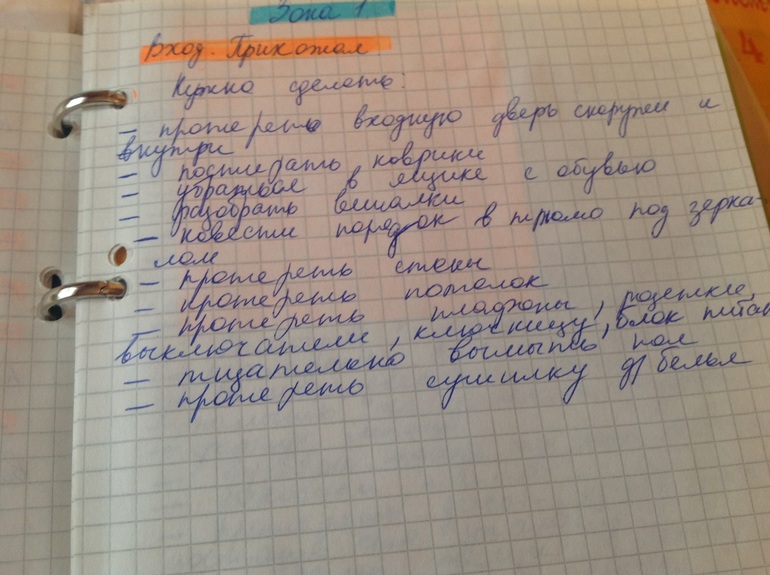 Зона 1
Вход. Прихожая
Нужно сделать:
– протереть входную дверь снаружи и
внутри
– постирать коврики
– убраться в ящике с обувью
– разобрать вешалки
– навести порядок в трюмо под зерка-
лом
– протереть стены
– протереть потолок
– протереть плафоны, розетки,
выключатели, ключницу, блок питан
– тщательно вымыть пол
– протереть сушилку д/белья
4